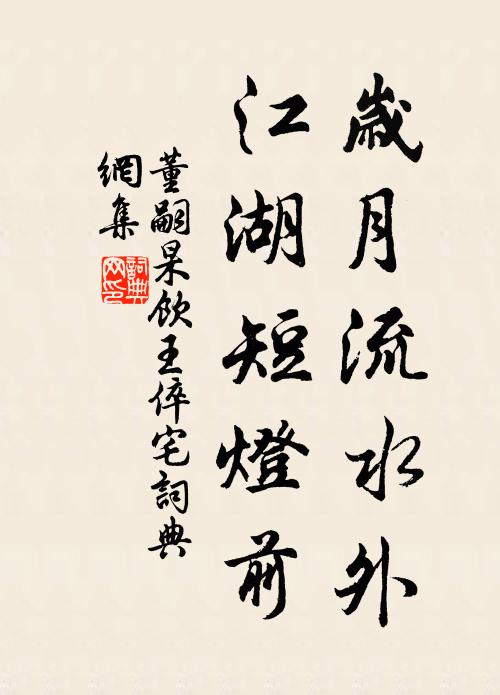 歲月流水外
江湖短燈前
董嗣杲飲王倅宅詞典
網集
詞典網印